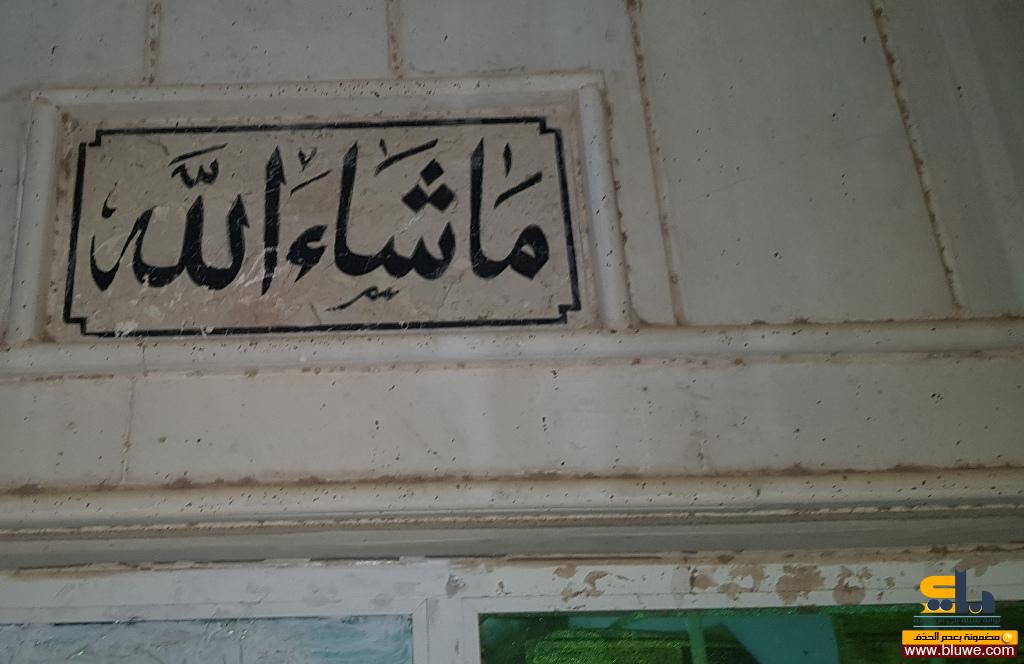 ما شاء الله
بلوي
مضمونة بعدم الحذف
www.bluwe.com